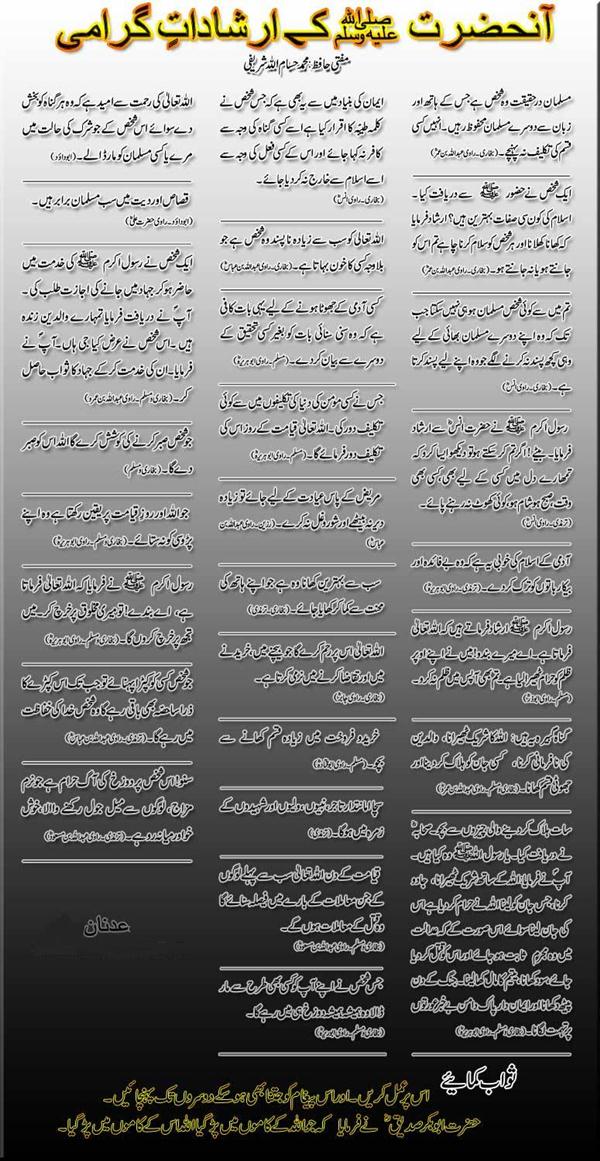 آنحضرت ﷺ کے ارشاداتِ گرامی
مفتی حافظ محمد حسام اللہ شریفی
مسلمان در حقیقت وہ شخص ہے جس کے ہاتھ اور
زبان سے دوسرے مسلمان محفوظ رہیں۔ انہیں کسی
قسم کی تکلیف نہ پہنچے۔ (بخاری۔ راوی عبداللہ بن عمرؓ)
ایک شخص نے حضور ﷺ سے دریافت کیا۔
اسلام کی کون سی صفات بہترین ہیں؟ ارشاد فرمایا
کہ کھانا کھلانا اور ہر شخص کو سلام کرنا چاہے تم اس کو
جانتے ہو یا نہ جانتے ہو۔ (بخاری۔ راوی عبداللہ بن عمرؓ)
تم میں سے کوئی شخص مسلمان ہو ہی نہیں سکتا جب
تک کہ وہ اپنے دوسرے مسلمان بھائی کے لیے
وہی کچھ پسند نہ کرنے لگے جو وہ اپنے لیے پسند کرتا
ہے۔ (بخاری۔ راوی انسؓ)
رسول اکرم ﷺ نے حضرت انسؓ سے ارشاد
فرمایا۔ بیٹے! اگر تم کر سکتے ہو تو دیکھو ایسا کرو کہ
تمہارے دل میں کسی کے لیے بھی کسی بھی
وقت صبح ہو شام ہو کوئی کھوٹ نہ رہنے پائے۔
(ترمذی۔ راوی انسؓ)
آدمی کے اسلام کی خوبی یہ ہے کہ وہ بے فائدہ اور
بیکار باتوں کو ترک کر دے۔ (ترمذی۔ راوی ابوہریرہؓ)
رسول اکرم ﷺ ارشاد فرماتے ہیں کہ اللہ تعالیٰ
فرماتا ہے۔ اے میرے بندو! میں نے اپنے اوپر
ظلم کو حرام ٹھہرا لیا ہے۔ تم بھی آپس میں ظلم نہ کرو۔
گناہ کبیرہ یہ ہیں: اللہ کا شریک ٹھہرانا، والدین
کی نافرمانی کرنا، کسی جان کو ہلاک کر دینا اور
جھوٹی قسم کھانا۔
سات ہلاک کر دینے والی چیزوں سے بچو۔ صحابہؓ
نے دریافت کیا۔ یا رسول اللہ ﷺ وہ کیا ہیں۔
آپؐ نے فرمایا اللہ کے ساتھ شریک ٹھہرانا، جادو
کرنا، جس جان کو لینا اللہ نے حرام کر دیا ہے اس
کی جان لینا سوائے اس صورت کے کہ عدالت
میں وہ مجرم ثابت ہو جائے اور اس کو قتل کر دیا
جائے، سود کھانا، یتیم کا مال کھا لینا۔ جنگ کے دن
پیٹھ دکھانا اور ایمان دار پاک دامن بے خبر عورتوں
پر تہمت لگانا۔
ایمان کی بنیاد میں سے یہ بھی ہے کہ جس شخص نے
کلمہ طیبہ کا اقرار کیا ہے اسے کسی گناہ کی وجہ سے
کافر نہ کہا جائے اور اس کے کسی فعل کی وجہ سے
اسے اسلام سے خارج نہ کر دیا جائے۔
(بخاری۔ راوی انسؓ)
اللہ تعالیٰ کو سب سے زیادہ نا پسند وہ شخص ہے جو
بلا وجہ کسی کا خون بہاتا ہے۔ (بخاری۔ راوی عبداللہ بن عباسؓ)
کسی آدمی کے جھوٹا ہونے کے لیے یہی بات کافی
ہے کہ وہ سنی سنائی بات کو بغیر کسی تحقیق کے
دوسرے سے بیان کر دے۔ (مسلم۔ راوی ابوہریرہؓ)
جس نے کسی مؤمن کی دنیا کی تکلیفوں میں سے کوئی
تکلیف دور کی۔ اللہ تعالیٰ قیامت کے روز اس کی
تکلیف دور فرمائے گا۔ (مسلم۔ راوی ابوہریرہؓ)
مریض کے پاس عیادت کے لیے جائے تو زیادہ
دیر نہ بیٹھے اور شور و غل نہ کرے۔ (رزین۔ راوی عبداللہ بن
عباسؓ)
سب سے بہترین کھانا وہ ہے جو اپنے ہاتھ کی
محنت سے کما کر کھایا جائے۔
اللہ تعالیٰ اس پر رحم کرے گا جو بیچنے میں خریدنے
میں اور تقاضا کرنے میں نرمی کرتا ہے۔
(بخاری۔ راوی جابرؓ)
خرید و فروخت میں زیادہ قسم کھانے سے
بچو۔
سچا امانتدار تاجر، نبیوں، ولیوں اور شہیدوں کے
زمرہ میں ہوگا۔ (ترمذی)
قیامت کے دن اللہ تعالیٰ سب سے پہلے لوگوں
کے جن معاملات کے بارے میں فیصلہ سنائے گا
وہ قتل کے معاملات ہوں گے۔
جس شخص نے اپنے آپ کو کسی بھی طرح سے مار
ڈالا وہ ہمیشہ ہمیشہ دوزخ ہی میں رہے گا۔
(بخاری و مسلم۔ راوی ابوہریرہؓ)
اللہ تعالیٰ کی رحمت سے امید ہے کہ وہ ہر گناہ کو بخش
دے سوائے اس شخص کے جو شرک کی حالت میں
مرے یا کسی مسلمان کو مار ڈالے۔ (ابوداؤد)
قصاص اور دیت میں سب مسلمان برابر ہیں۔
(ابوداؤد۔ راوی حضرت علیؓ)
ایک شخص نے رسول اکرم ﷺ کی خدمت میں
حاضر ہو کر جہاد میں جانے کی اجازت طلب کی۔
آپؐ نے دریافت فرمایا تمہارے والدین زندہ
ہیں۔ اس شخص نے عرض کیا جی ہاں۔ آپؐ نے
فرمایا۔ ان کی خدمت کر کے جہاد کا ثواب حاصل
کر۔ (بخاری و مسلم۔ راوی عبداللہ بن عمرو)
جو شخص صبر کرنے کی کوشش کرے گا اللہ اس کو صبر
دے گا۔ (بخاری و مسلم)
جو اللہ اور روز قیامت پر یقین رکھتا ہے وہ اپنے
پڑوسی کو نہ ستائے۔ (بخاری و مسلم۔ راوی ابوہریرہؓ)
رسول اکرم ﷺ نے فرمایا کہ اللہ تعالیٰ فرماتا
ہے، اے بندے! تو میری مخلوق پر خرچ کر۔ میں
تجھ پر خرچ کروں گا۔ (بخاری و مسلم۔ راوی ابوہریرہؓ)
جو شخص کسی کو کپڑا پہنائے تو جب تک اس کپڑے کا
ذرا سا حصہ بھی باقی رہے گا وہ شخص خدا کی حفاظت
میں رہے گا۔ (ترمذی۔ راوی عبداللہ بن عباسؓ)
سنو! اس شخص پر دوزخ کی آگ حرام ہے جو نرم
مزاج، لوگوں سے میل جول رکھنے والا، خوش
خو اور میانہ رو ہے۔ (ترمذی۔ راوی عبداللہ بن مسعودؓ)
عدنان
ثواب کمایئے
اس پر عمل کریں۔ اور اس پیغام کو جتنا بھی ہو سکے دوسروں تک پہنچائیں۔
حضرت ابوبکر صدیقؓ نے فرمایا کہ جو اللہ کے کاموں میں پڑ گیا اللہ اس کے کاموں میں پڑ گیا۔